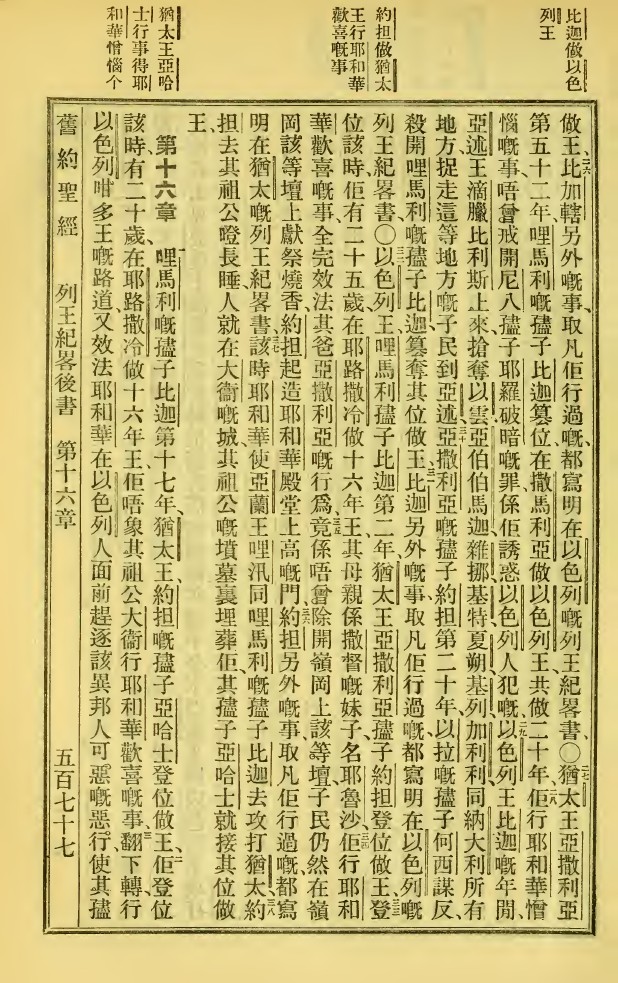 比迦做以色
列王
約担做猶太
王行耶和華
歡喜嘅事
猶太王亞哈
士行事得耶
和華憎惱个
做王、二六比加轄另外嘅事、取凡佢行過嘅、都寫明在以色列嘅列王紀畧書、〇二七猶太王亞撒利亞
第五十二年、哩馬利嘅孻子比迦篡位、在撒馬利亞做以色列王、共做二十年、二八佢行耶和華憎
惱嘅事、唔曾戒開尼八孻子耶羅破暗嘅罪、係佢誘惑以色列人犯嘅、二九以色列王比迦嘅年間、
亞述王滴臘比利斯上來搶奪以雲、亞伯伯馬迦、雜挪、基特夏朔、基列、加利利、同納大利所有
地方、捉走這等地方嘅子民到亞述、三十亞撒利亞嘅孻子約担第二十年、以拉嘅孻子何西謀反、
殺開哩馬利嘅孻子比迦、篡奪其位做王、三一比迦另外嘅事、取凡佢行過嘅、都寫明在以色列嘅
列王紀畧書、〇三二以色列王哩馬利孻子比迦第二年、猶太王亞撒利亞孻子約担登位做王、三三登
位該時佢有二十五歲、在耶路撒冷做十六年王、其母親係撒督嘅妹子、名耶魯沙、三四佢行耶和
華歡喜嘅事、全完效法其爸亞撒利亞嘅行爲、三五竟係唔曾除開嶺岡上該等壇、子民仍然在嶺
岡該等壇上獻祭燒香、約担起造耶和華殿堂上高嘅門、三六約担另外嘅事、取凡佢行過嘅、都寫
明在猶太嘅列王紀畧書、三七該時耶和華使亞蘭王哩汛同哩馬利嘅孻子比迦、去攻打猶太、三八約
担去其祖公噔長睡、人就在大衞嘅城、其祖公嘅墳墓裏埋葬佢、其孻子亞哈士就接其位做
王、
第十六章
一哩馬利嘅孻子比迦第十七年、猶太王約担嘅孻子亞哈士登位做王、二佢登位
該時、有二十歲、在耶路撒冷做十六年王、佢唔象其祖公大衞行耶和華歡喜嘅事、三翻下轉行
以色列咁多王嘅路道、又效法耶和華在以色列人面前趕逐該異邦人可惡嘅惡行、使其孻
舊約聖經　列王紀畧後書　第十六章　五百七十七